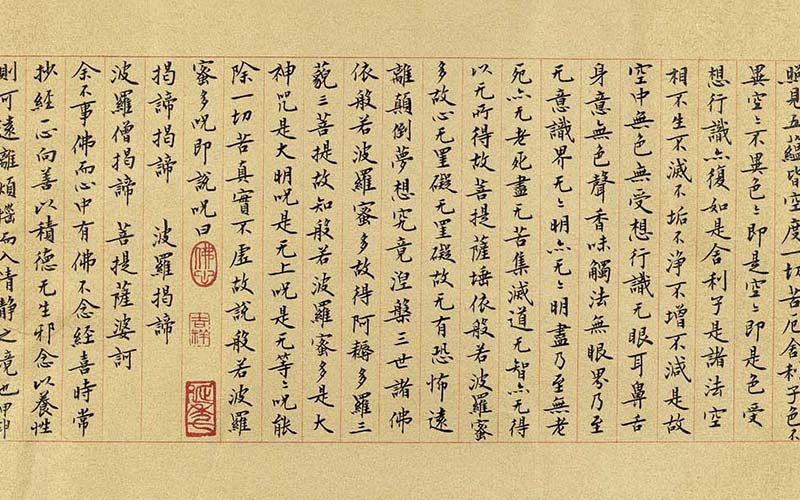 照見五蘊皆空度一切苦厄舍利子色不
異空〻不異色〻即是空〻即是色受
想行識亦復如是舍利子是諸法空
相不生不滅不垢不浄不增不減是故
空中無色無受想行識无眼耳鼻舌
身意無色聲香味觸法無眼界乃至
无意識界无〻明亦无〻明盡乃至無老
死亦无老死盡无苦集滅道无智亦无得
以无所得故菩提薩埵依般若波羅蜜
多故心无罣礙无罣礙故无有恐怖遠
離顛倒夢想究竟涅槃三世諸佛
依般若波羅蜜多故得阿耨多羅三
藐三菩提故知般若波羅蜜多是大
神咒是大明咒是无上咒是无等〻咒能
除一切苦真實不虛故說般若波羅
蜜多咒即說咒曰
吉祥
揭諦揭諦 波羅揭諦
波羅僧揭諦 菩提薩婆訶
余不事佛而心中有佛不念經喜時常
抄經一心向善以積德无生邪念以養性
則可遠離煩惱而入清静之境也甲申